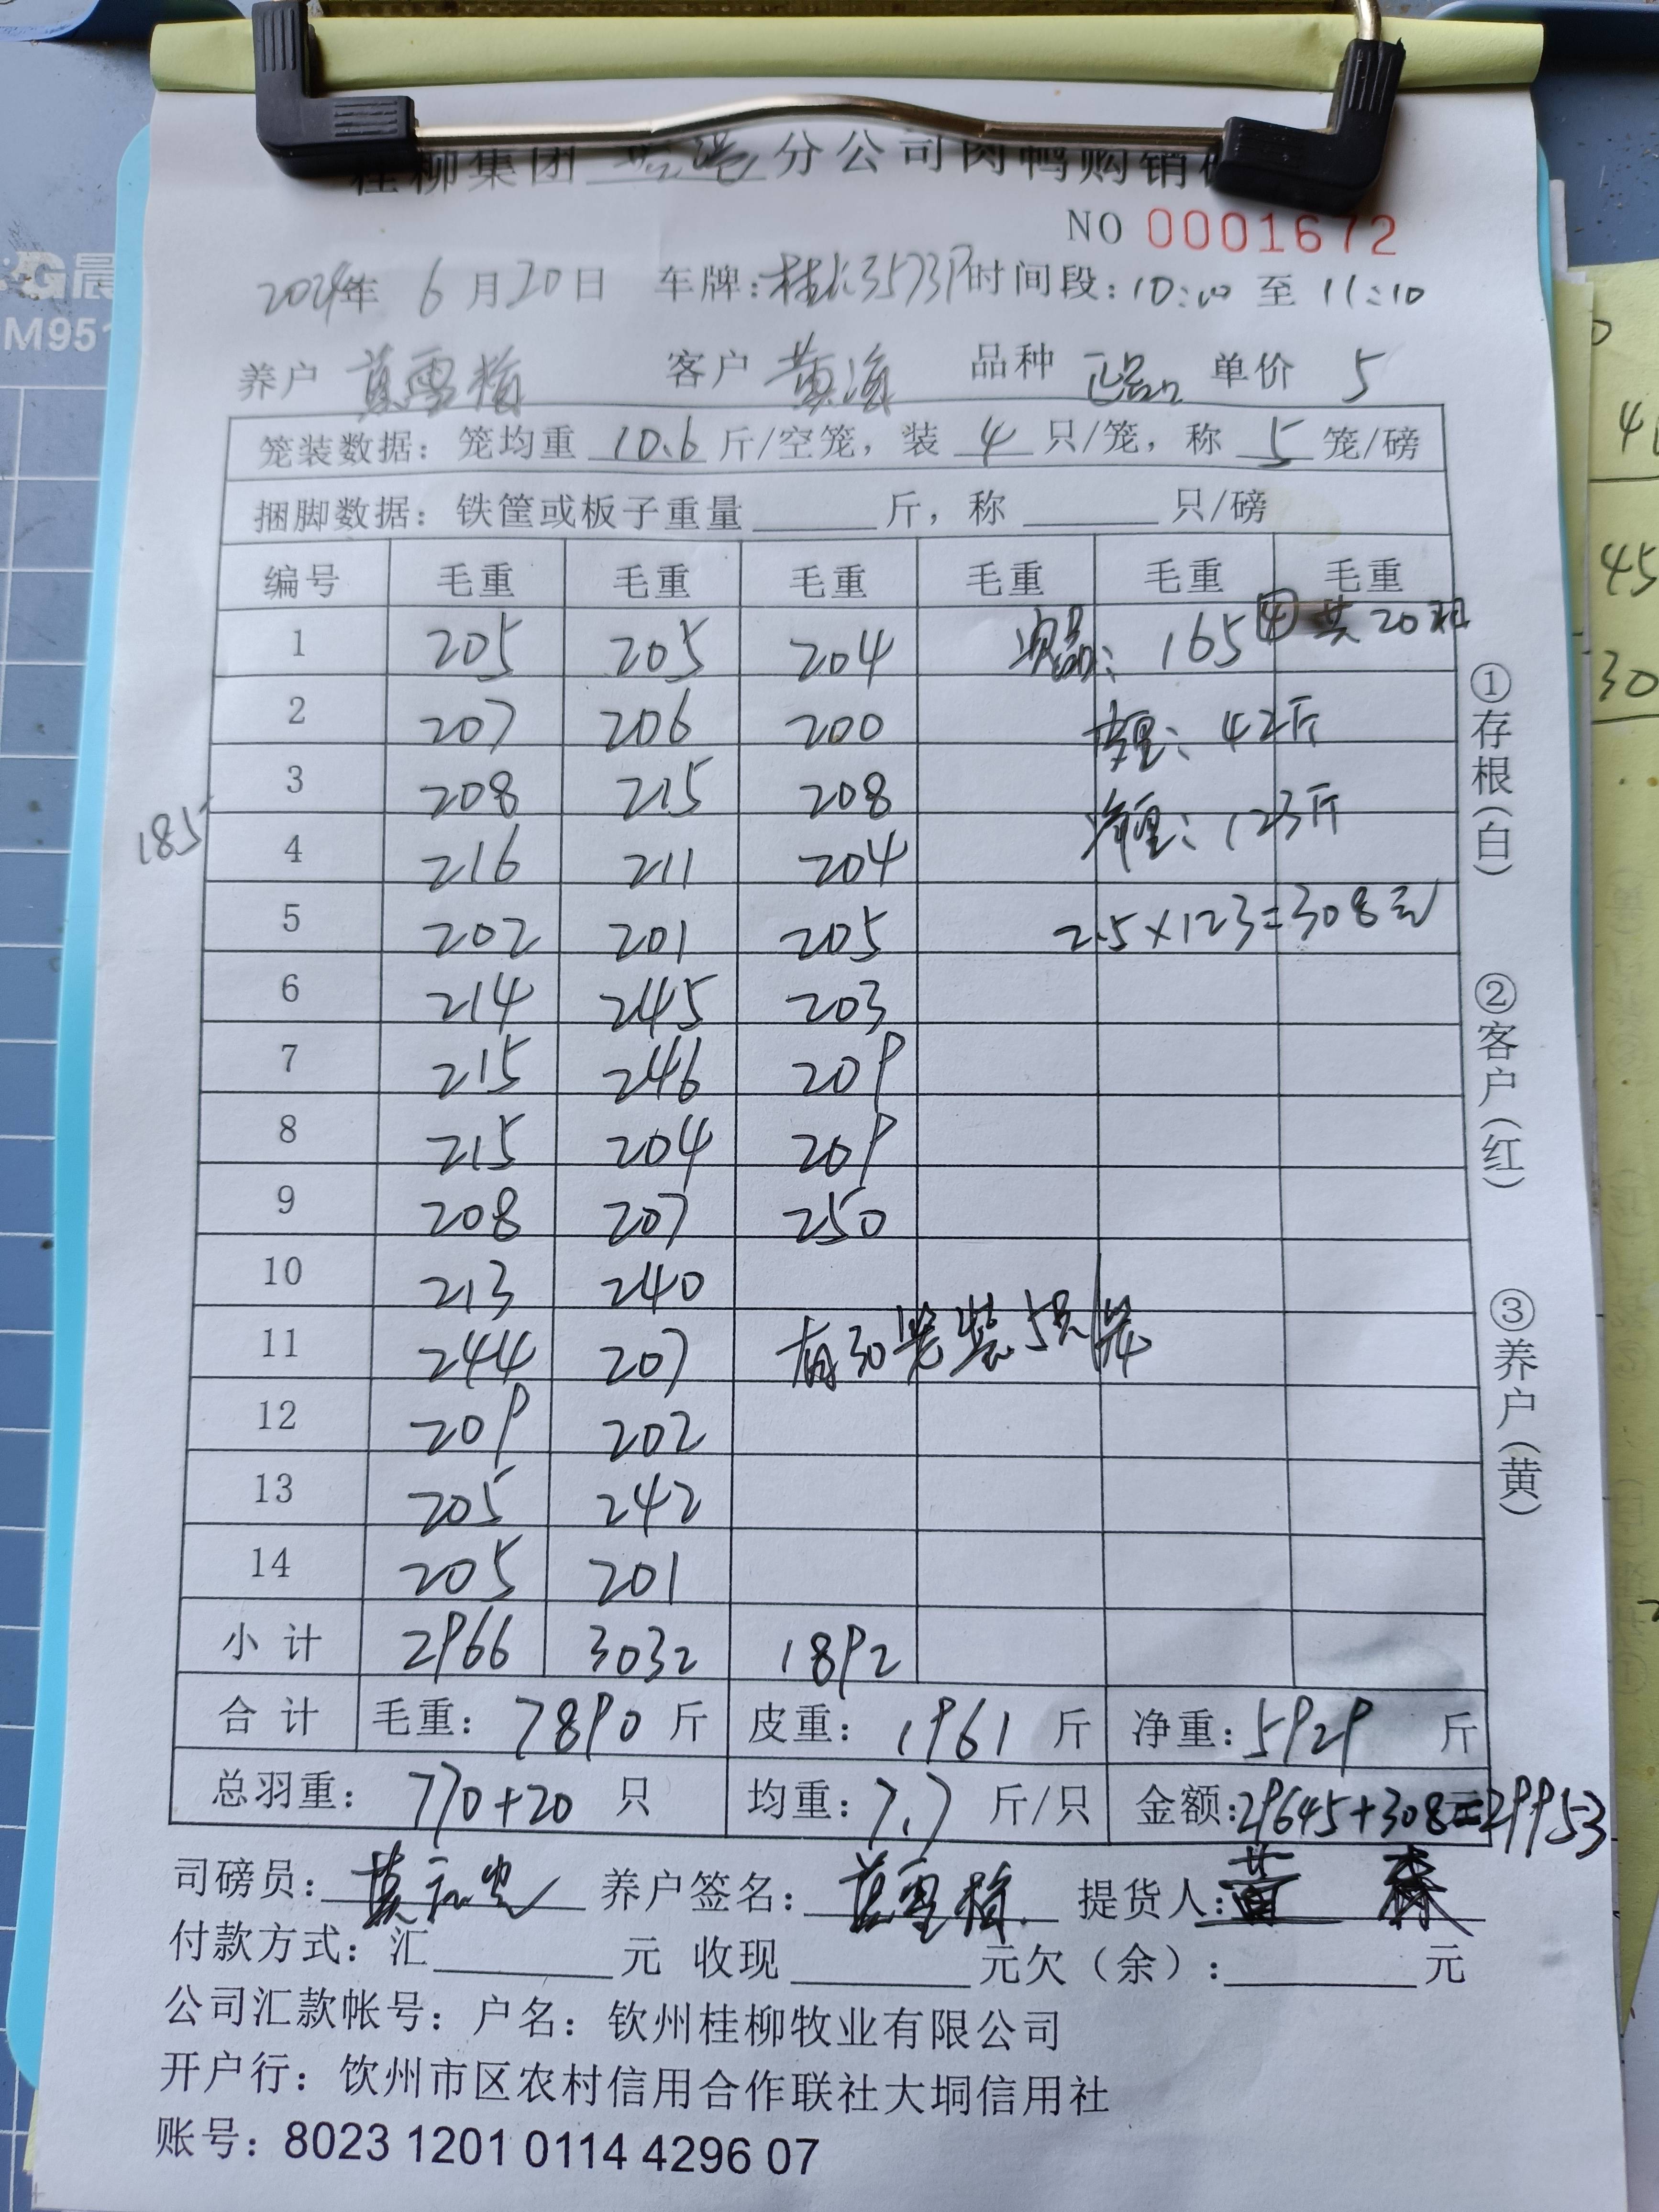 桂柳集团 分公司肉鸭购销
NO 0001672
2024年 6月20日 车牌: 时间段:10:00 至 11:10
养户 黄雪梅 客户 黄海 品种 正品 单价 5
笼装数据: 笼均重 10.6 斤/空笼, 装 4 只/笼, 称 5 笼/磅
捆脚数据: 铁筐或板子重量 斤, 称 只/磅
编号 毛重 毛重 毛重 毛重 毛重 毛重
1 205 205 204 次品: 165 ④ 共20只
2 207 206 200 皮重: 42斤
3 208 215 208 净重: 123斤
185
4 216 211 204
5 202 201 205 2.5×123=308元
6 214 245 203
7 215 246 209
8 215 204 209
9 208 207 250
10 213 240
11 244 207 有30笼装5只/笼
12 209 202
13 205 242
14 205 201
小计 2966 3032 1892
合计 毛重: 7890 斤 皮重: 1961 斤 净重: 5929 斤
总羽重: 770+20 只 均重: 7.7 斤/只 金额: 29645+308=29953
司磅员: 养户签名: 黄雪梅 提货人: 黄 森
付款方式: 汇 元 收现 元欠(余): 元
公司汇款帐号: 户名: 钦州桂柳牧业有限公司
开户行: 钦州市区农村信用合作联社大垌信用社
账号: 8023 1201 0114 4296 07
①存根(白)
②客户(红)
③养户(黄)
晨
M951
45
30